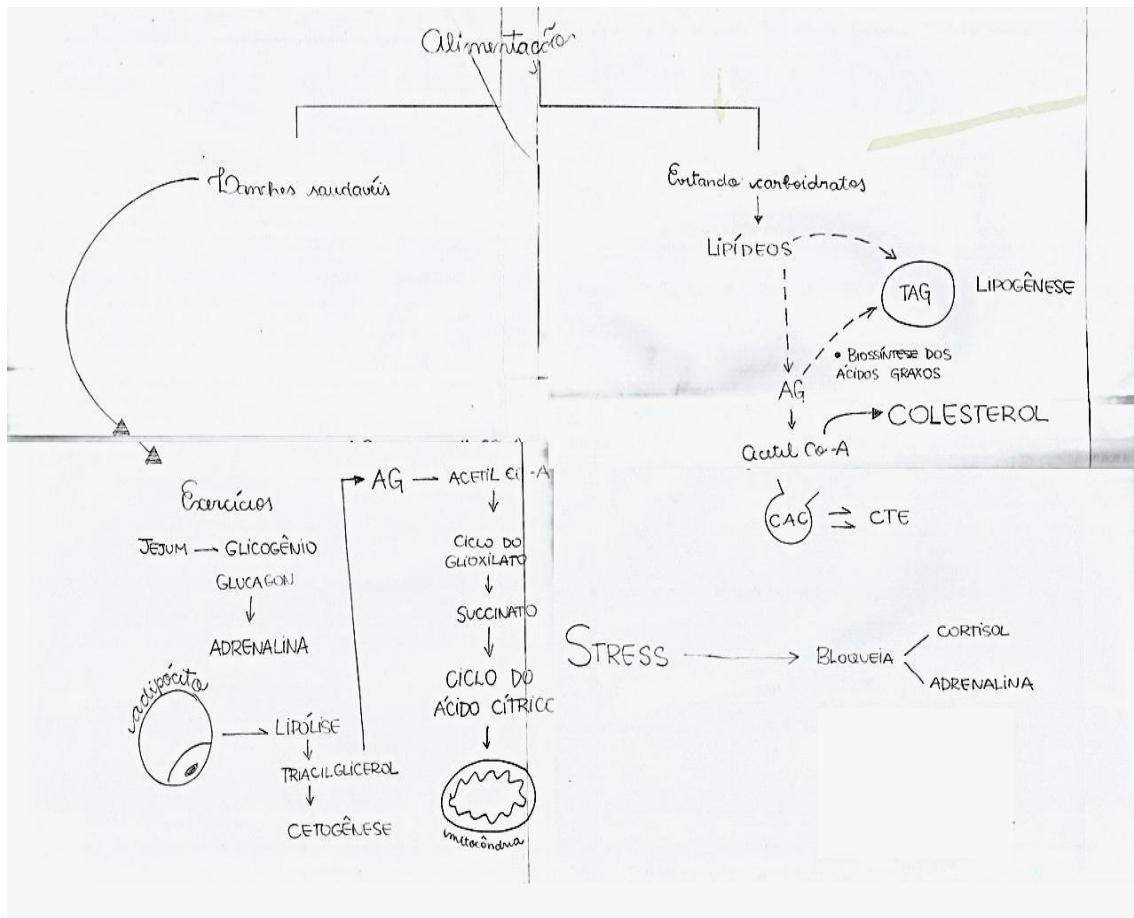 Alimentação
Lanches saudavéis
Evitando carboidratos
LIPÍDEOS
TAG
LIPOGÊNESE
• BIOSSÍNTESE DOS
ÁCIDOS GRAXOS
AG
COLESTEROL
Acetil Co-A
CAC
CTE
Exercícios
JEJUM
GLICOGÊNIO
GLUCAGON
ADRENALINA
adipócito
LIPÓLISE
TRIACILGLICEROL
CETOGÊNESE
AG
ACETIL
-A
CICLO DO
GLIOXILATO
SUCCINATO
CICLO DO
ÁCIDO CÍTRICO
mitocôndria
STRESS
BLOQUEIA
CORTISOL
ADRENALINA